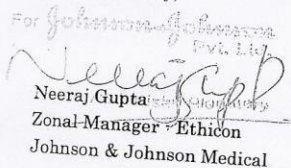 For Johnson & Johnson
Pvt. Ltd.
Neeraj Gupta
Neeraj Gupta
Zonal Manager - Ethicon
Johnson & Johnson Medical